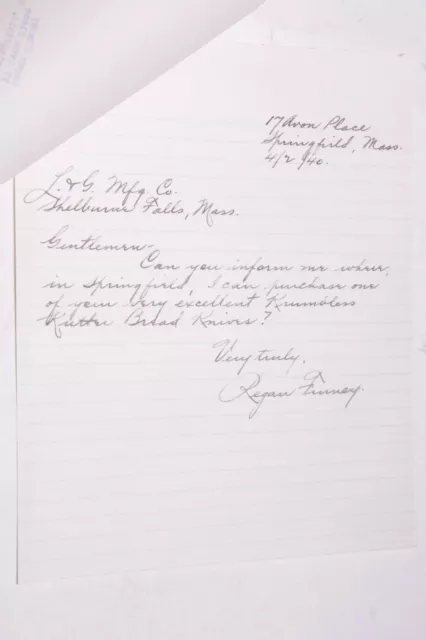 17 Avon Place
Springfield, Mass.
4/2/40.
L. & G. Mfg. Co.
Shelburne Falls, Mass.
Gentlemen-
Can you inform me where,
in Springfield, I can purchase one
of your very excellent Krumbless
Kutter Bread Knives?
Very truly,
Regan Finney.